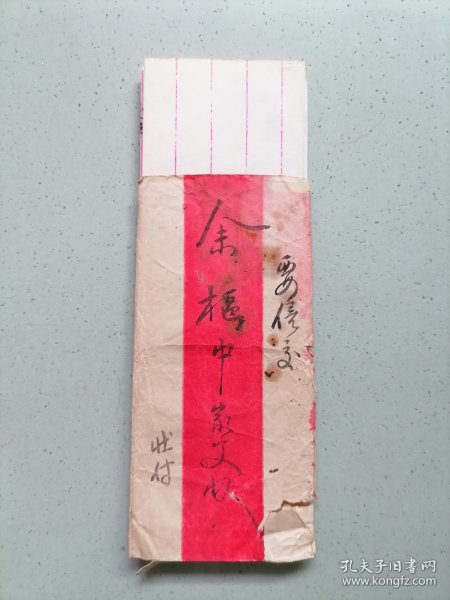 要信交
余樞中家父收
壮付
孔夫子旧书网
www.kongfz.com